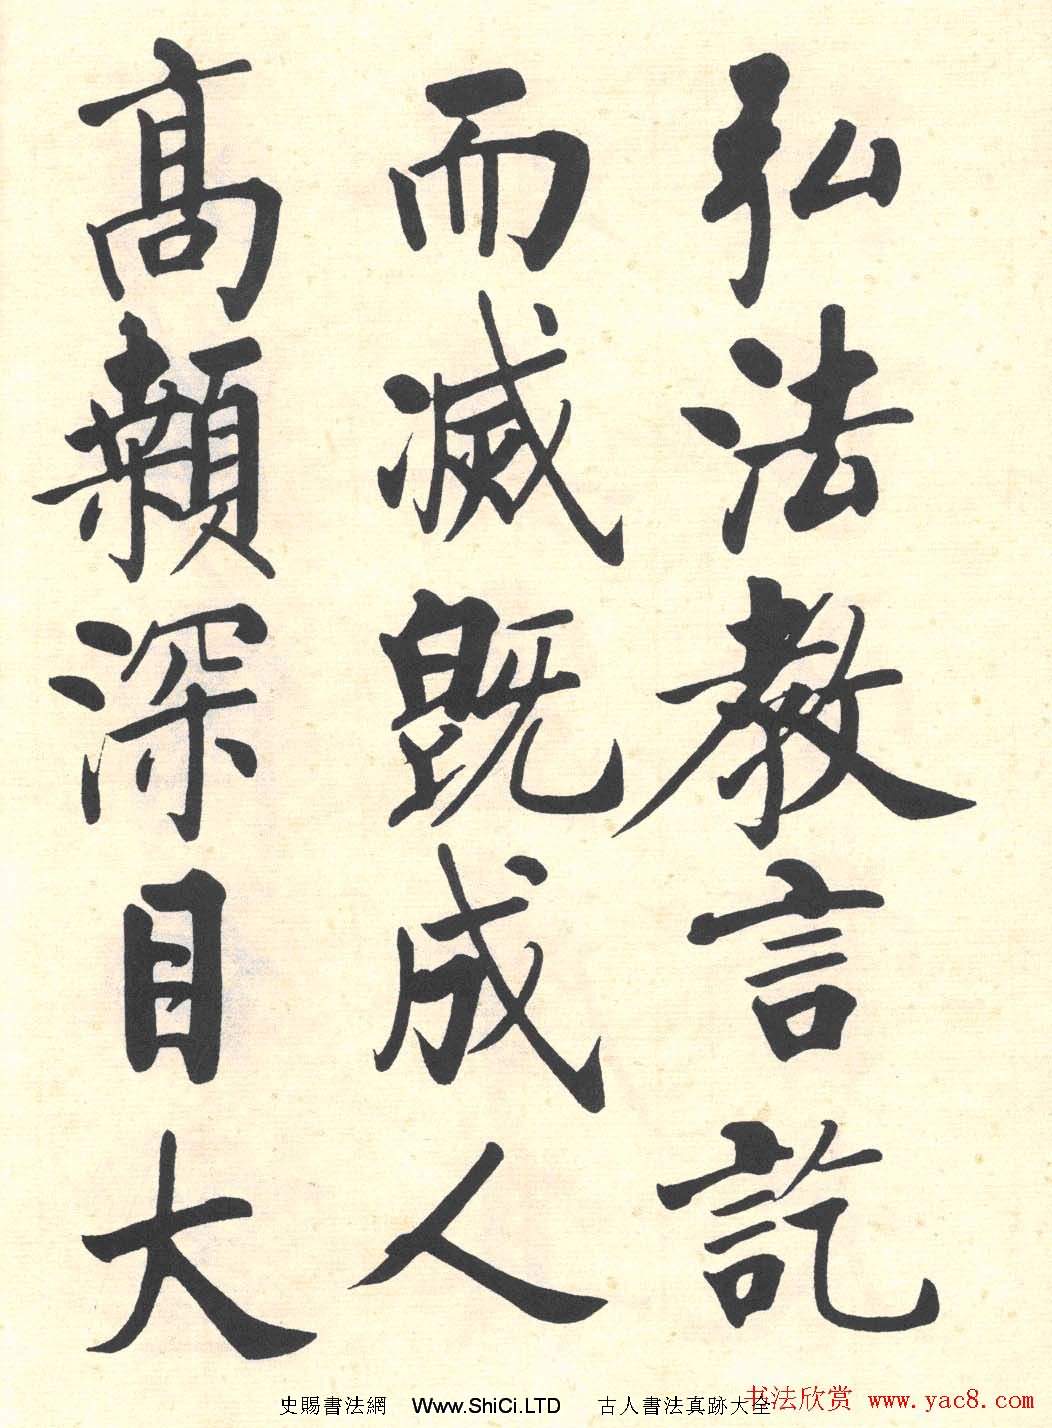 弘法教言訖
而滅既成人
高顙深目大
史賜書法網 Www.ShiCi.LTD 古人書法真跡大全
书法欣赏 www.yac8.com